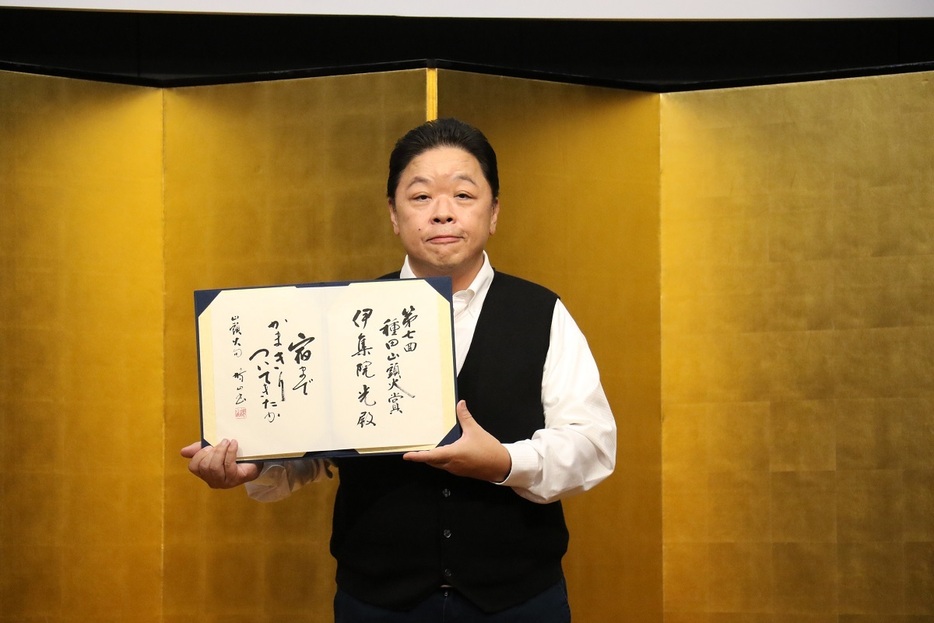 第七回
種田山頭火賞
伊集院光殿
宿まで
かまきり
ついてきたか
山頭火の句